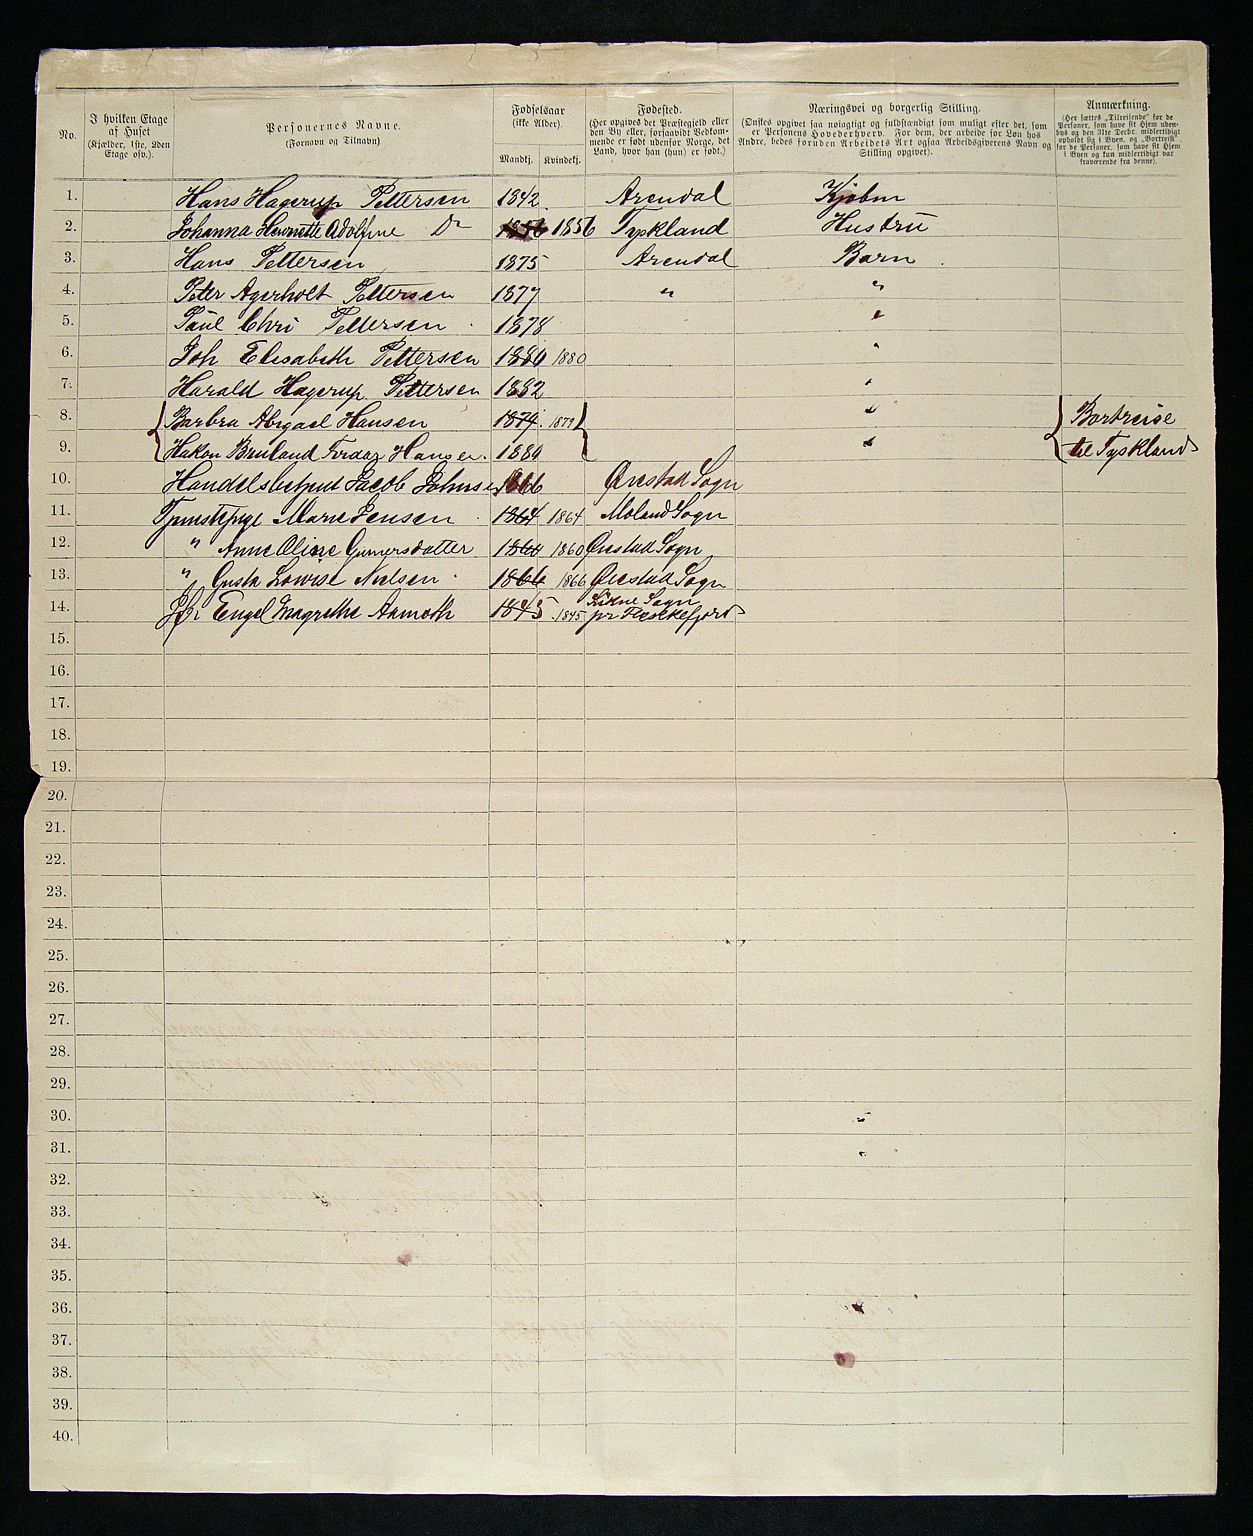 No.
I hvilken Etage af Huset
(Kjælder, 1ste, 2den Etage osv.).
Personernes Navne.
(Fornavn og Tilnavn)
Fødselsaar
(ikke Alder).
Mandkj. Kvindekj.
Fødested.
(Her opgives det Præstegjeld eller
den By eller, forsaavidt Vedkom-
mende er født udenfor Norge, det
Land, hvor han (hun) er født.)
Næringsvei og borgerlig Stilling.
(Ønstes opgivet saa nøiagtigt og fuldstændigt som muligt efter det, som
er Personens Hovederhverv. For dem, der arbeide for Løn hos
Andre, bedes foruden Arbeidets Art ogsaa Arbeidsgiverens Navn og
Stilling opgivet).
Anmærkning.
(Her sættes „Tilreisende" for de
Personer, som have sit Hjem uden-
bys og den 31te Decbr. midlertidigt
opholdt sig i Byen, og „Bortreist"
for de Personer, som have sit Hjem
i Byen og kun midlertidigt var
fraværende fra denne).
1. Hans Hagerup Pettersen 1842 Arendal Kjøbm
2. Johanna Henriette Adolfine Do 1856 1856 Tyskland Hustru
3. Hans Pettersen 1875 Arendal Barn
4. Peter Agerholt Pettersen 1877 " "
5. Paul Chri Pettersen 1878 "
6. Joh Elisabeth Pettersen 1880 1880 "
7. Harald Hagerup Pettersen 1882 "
8. Barbra Abigael Hansen 1879 1879 " Bortreise
9. Hakon Hansen. 1880 " til Tyskland
10. Handelsbetjent Jacob 1866 Øiestad Sogn
11. Tjenestepige Marie Jensen 1864 1864 Moland Sogn
12. " Anne Oline Gunnersdatter 1860 1860 Øiestad Sogn
13. " Gusta Lowise Nielsen 1866 1866 Øiestad Sogn
14. Engel Magrethe Aamoth 1845 1845 Sogn
pr Flekkefjord
15.
16.
17.
18.
19.
20.
21.
22.
23.
24.
25.
26.
27.
28.
29.
30.
31.
32.
33.
34.
35.
36.
37.
38.
39.
40.